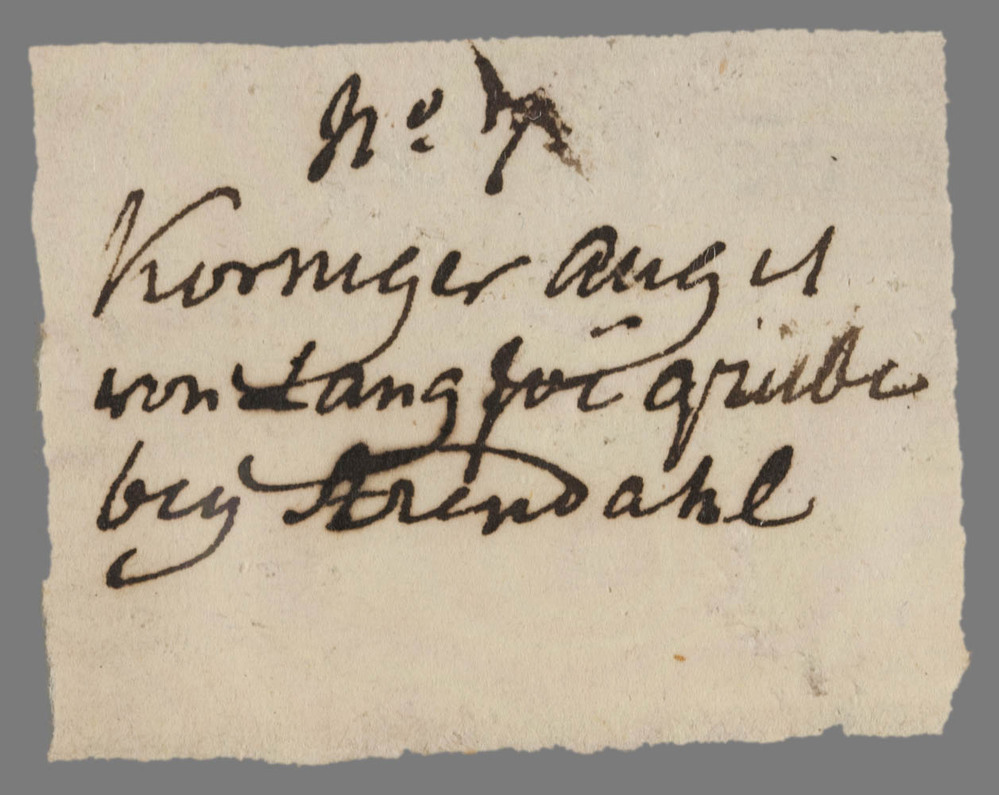 No 7.
Korniger Augit
von Langsoë grube
bey Arendahl